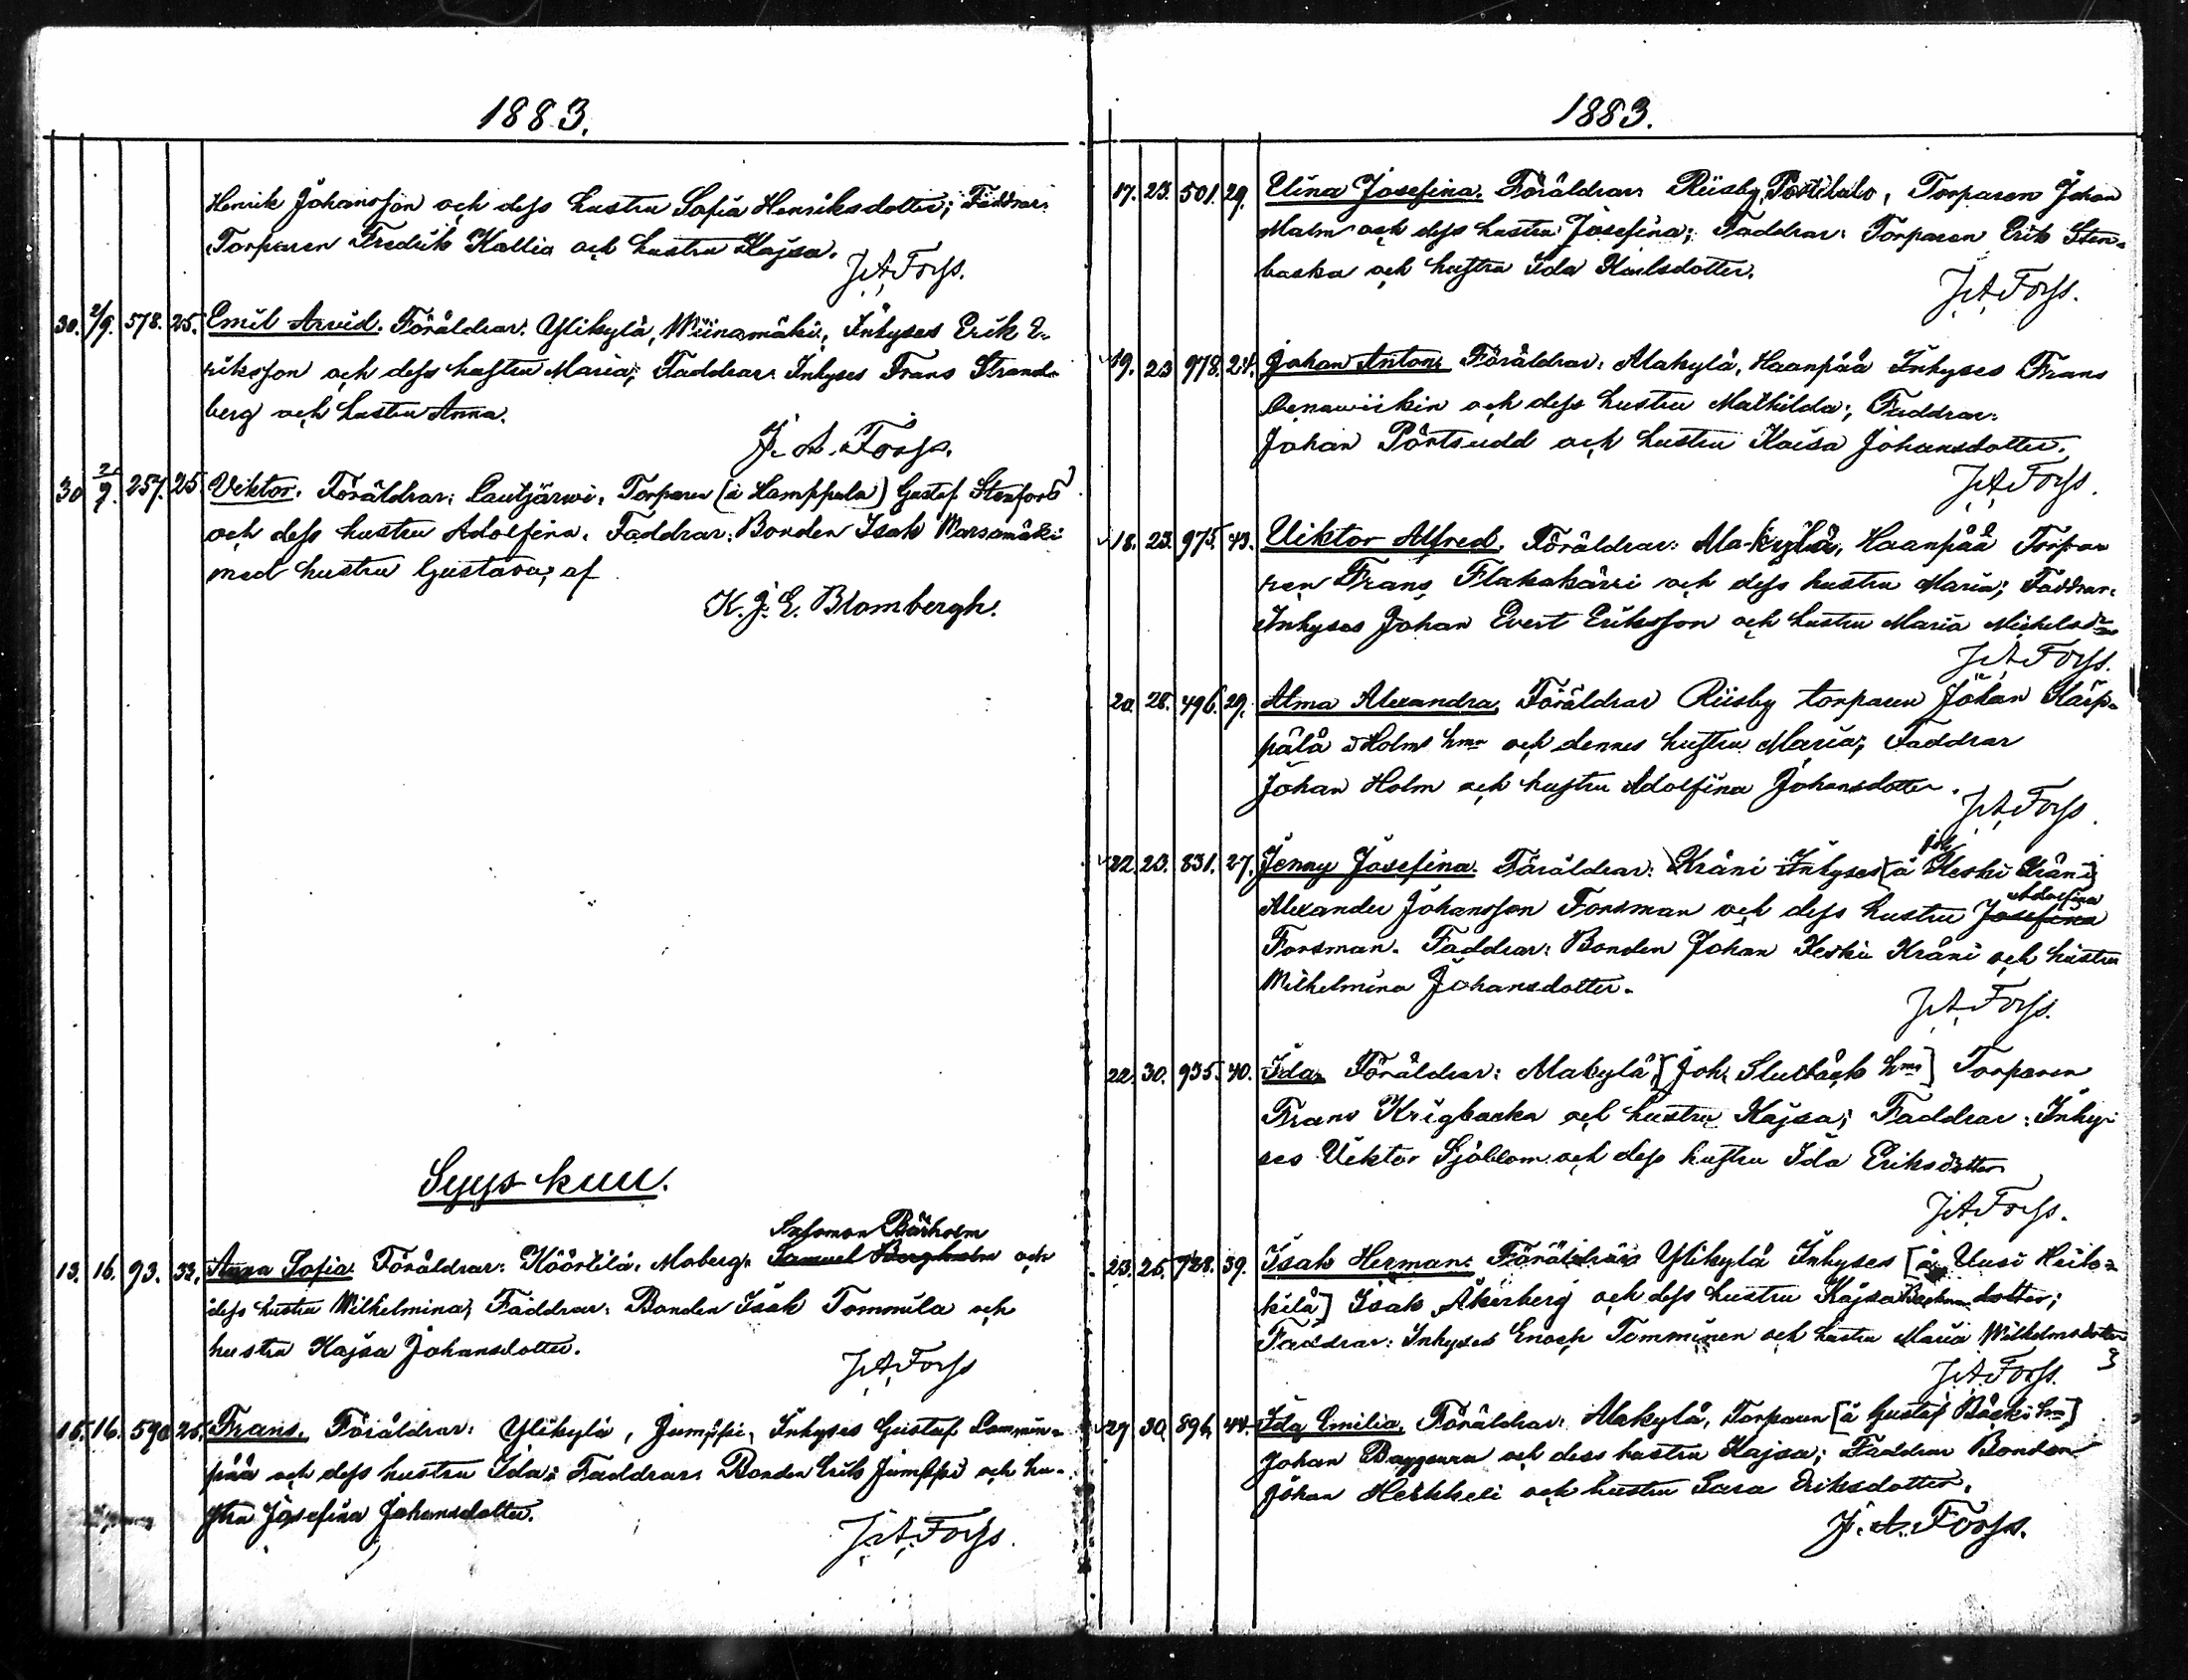 1883.
Henrik Johansson och dess hustru Sofia Henriksdotter; Faddrar:
Torparen Fredrik Kallia och hustru Kajsa.
J. A. Forss.
30. 2/9. 578. 25. Emil Arvid. Föräldrar: Ylikylä, Wiinamäki, Inhyses Erik E-
riksson och dess hustru Maria; Faddrar: Inhyses Frans Strand-
berg och hustru Anna.
J. A. Forss.
30 2/9. 257. 25 Viktor. Föräldrar: Lautjärwi, Torparen (å Hamppula) Gustaf Stenfors
och dess hustru Adolfina. Faddrar: Bonden Isak Warsamäki
med hustru Gustava, af
K. J. E. Blombergh.
Syys-kuu.
Salomon Bärholm
13. 16. 93. 33. Anna Sofia. Föräldrar: Köörtilä, Moberg, Samuel Bergholm och
dess hustru Wilhelmina; Faddrar: Bonden Isak Tommila och
hustru Kajsa Johansdotter.
J. A. Forss
15. 16. 590 25. Frans. Föräldrar: Ylikylä, Jumppi, Inhyses Gustaf Lammin-
pää och dess hustru Ida; Faddrar: Bonden Erik Jumppi och hu-
stru Josefina Johansdotter.
J. A. Forss.
1883.
17. 23. 501. 29. Elina Josefina. Föräldrar: Riisby, Torparen Johan
Malm och dess hustru Josefina; Faddrar: Torparen Erik Sten-
backa och hustru Ida Karlsdotter.
J. A. Forss.
19. 23 978. 24. Johan Anton. Föräldrar: Alakylä, Haanpää Inhyses Frans
och dess hustru Mathilda; Faddrar:
Johan Pörtsudd och hustru Kaisa Johansdotter.
J. A. Forss.
18. 23. 975. 43. Viktor Alfred. Föräldrar: Ala-kylä, Haanpää Torpa-
ren Frans Flakakärri och dess hustru Maria; Faddrar:
Inhyses Johan Evert Eriksson och hustru Maria Mickelsdr
J. A. Forss.
20. 28. 496. 29. Alma Alexandra. Föräldrar Riisby torparen Johan Kärp-
pälä å Holms hmn och dennes hustru Maria; Faddrar
Johan Holm och hustru Adolfina Johansdotter.
J. A. Forss.
22. 23. 831. 27. Jenny Josefina. Föräldrar: Kräni Inhyses [å Keski Kräni]
Adolfina
Alexander Johansson Forsman och dess hustru Josefina
Forsman. Faddrar: Bonden Johan Keski Kräni och hustru
Wilhelmina Johansdotter.
J. A. Forss.
22. 30. 935. 40. Ida. Föräldrar: Alakylä, [Joh. hmn] Torparen
Frans Krigbacka och hustru Kajsa; Faddrar: Inhy-
ses Viktor Sjöblom och dess hustru Ida Eriksdotter
J. A. Forss.
23. 25. 728. 39. Isak Herman. Föräldrar Ylikylä Inhyses [å Uusi Heik-
kilä] Isak Åkerberg och dess hustru Kajsa dotter;
Faddrar: Inhyses Enoch Tomminen och hustru Maria Wilhelmsdotter
J. A. Forss.
27 30. 896. 44. Ida Emilia. Föräldrar: Alakylä, Torparen [å Gustaf Bäcki hmn]
Johan och dess hustru Kajsa; Faddrar Bonden
Johan Heikkeli och hustru Sara Eriksdotter.
J. A. Forss.